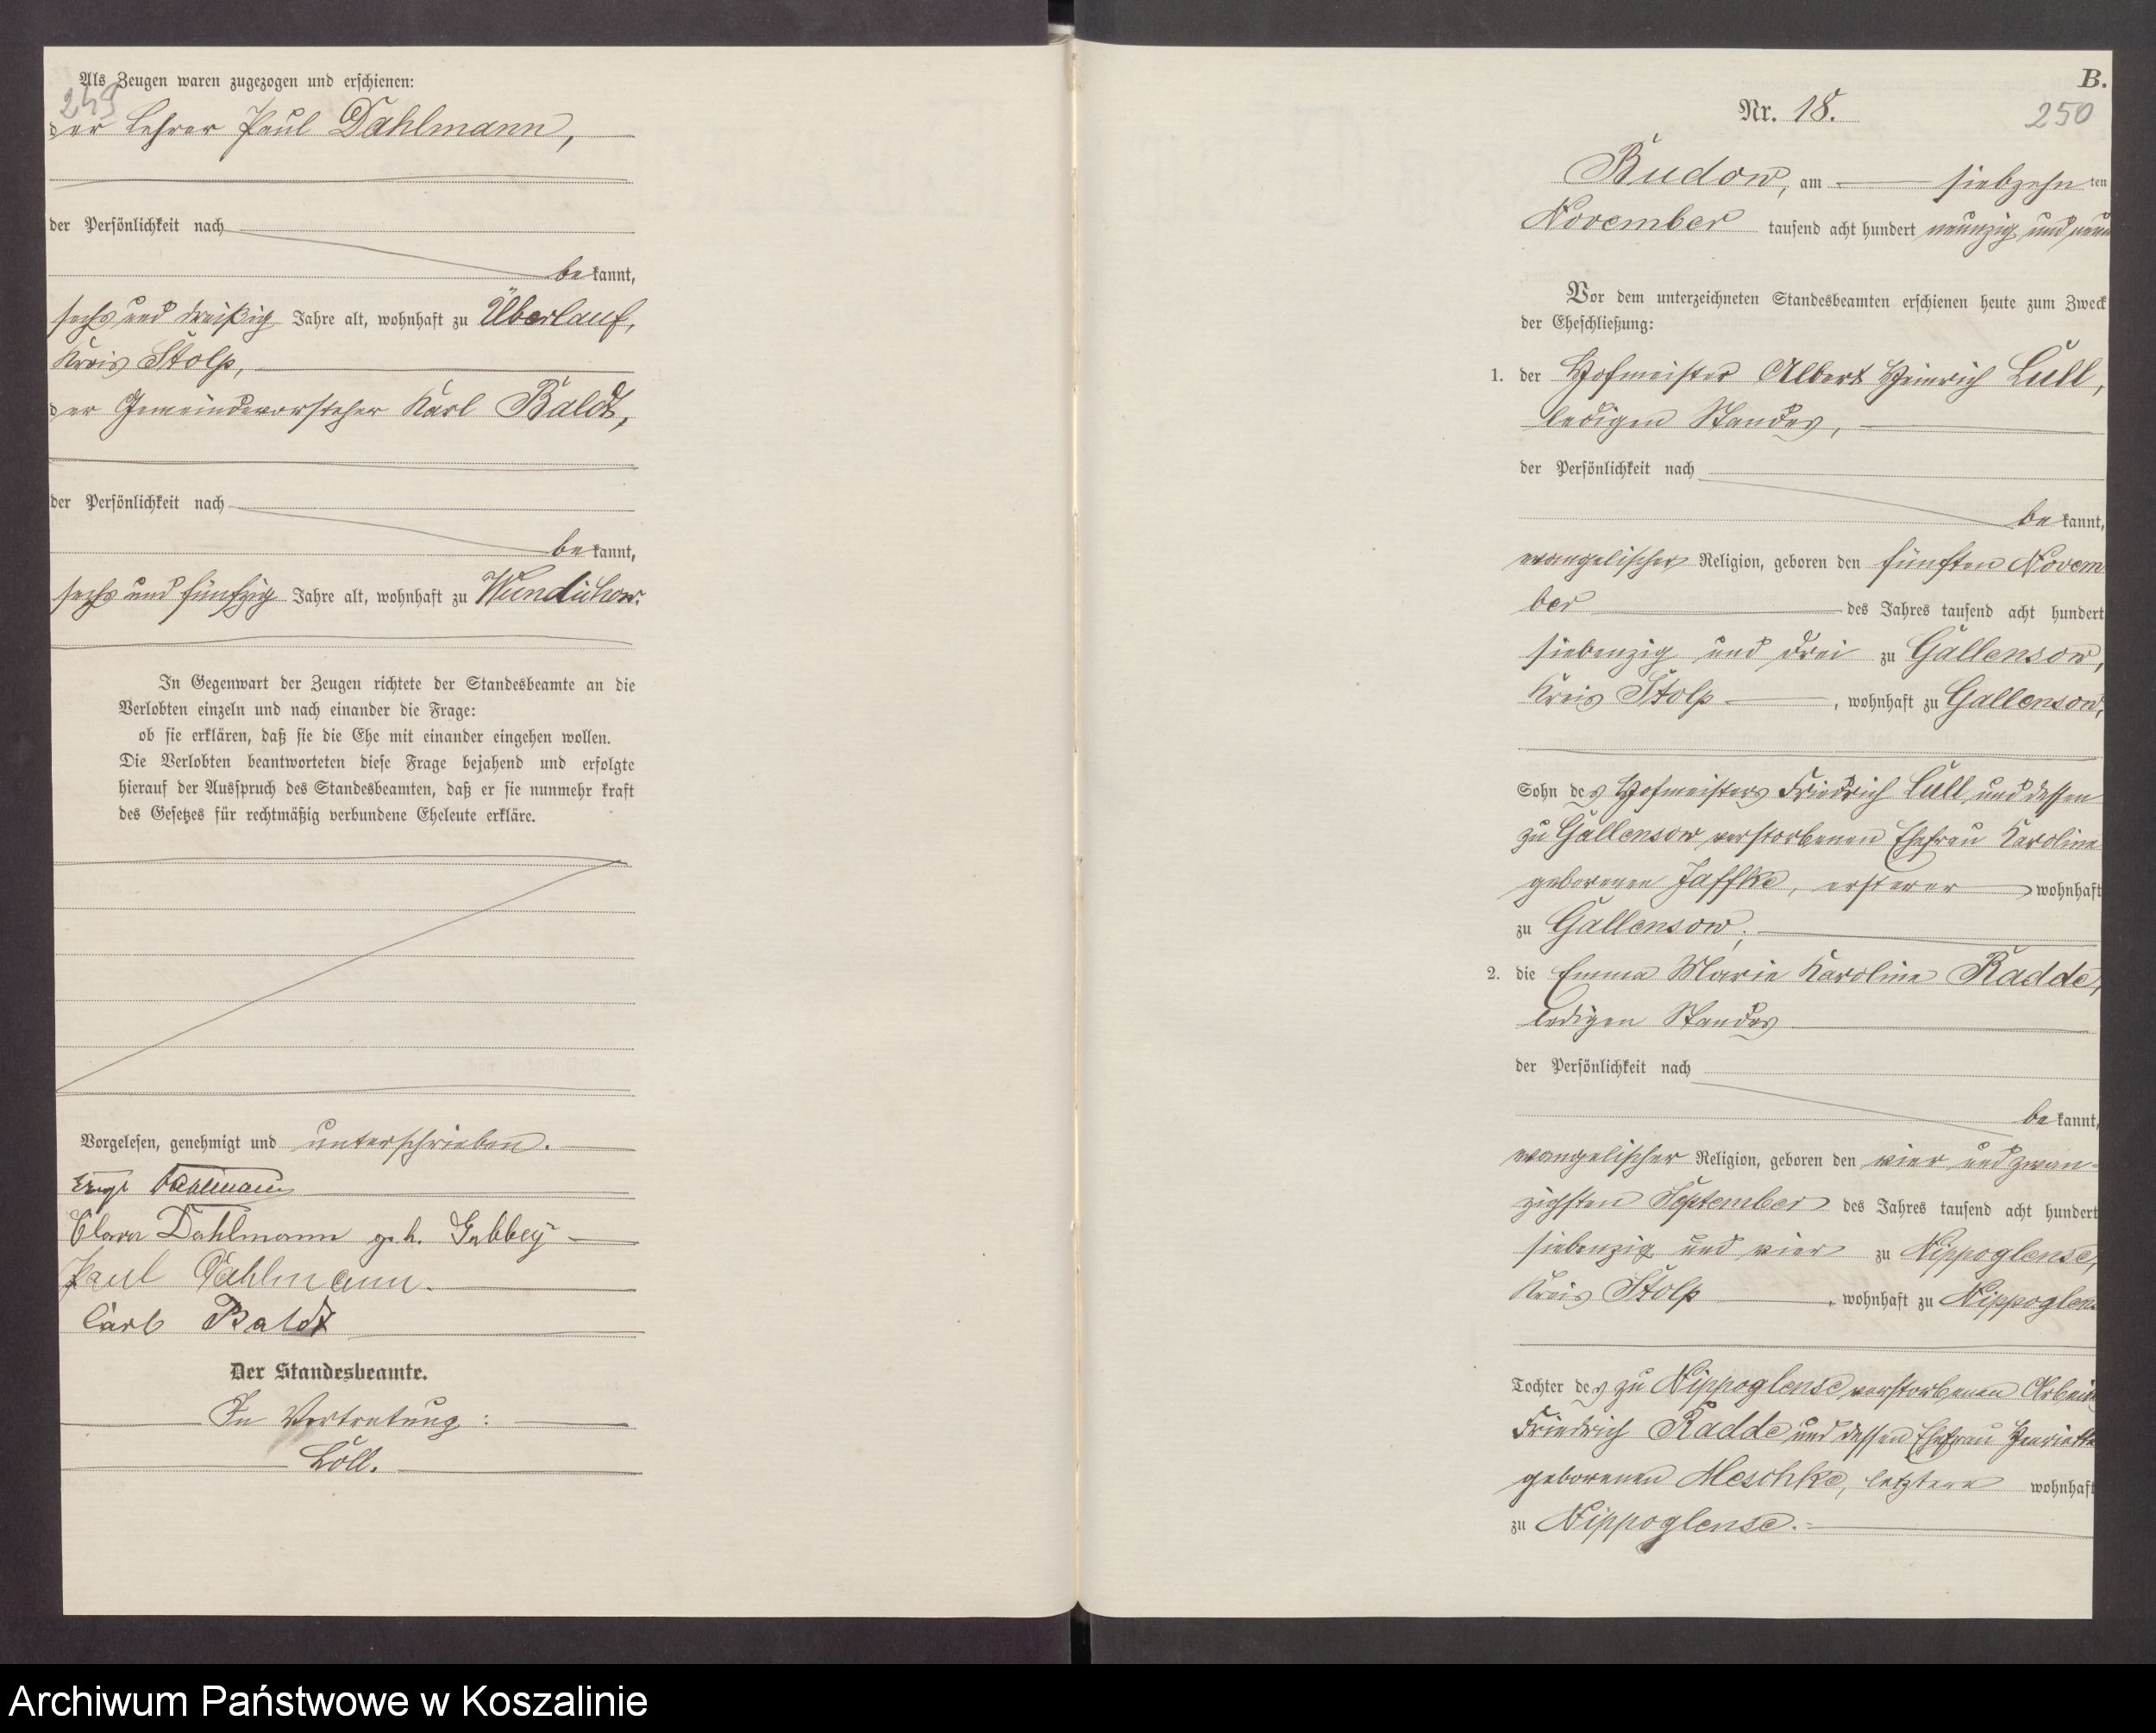 Als Zeugen waren zugezogen und erschienen:
249
der Lehrer Paul Dahlmann,
der Persönlichkeit nach
bekannt,
sechs und dreißig Jahre alt, wohnhaft zu Überlauf,
Kreis Stolp,
der Gemeindevorsteher Karl Baldt,
der Persönlichkeit nach
bekannt,
sechs und fünfzig Jahre alt, wohnhaft zu Wundichow.
In Gegenwart der Zeugen richtete der Standesbeamte an die
Verlobten einzeln und nach einander die Frage:
ob sie erklären, daß sie die Ehe mit einander eingehen wollen.
Die Verlobten beantworteten diese Frage bejahend und erfolgte
hierauf der Ausspruch des Standesbeamten, daß er sie nunmehr kraft
des Gesetzes für rechtmäßig verbundene Eheleute erkläre.
Vorgelesen, genehmigt und unterschrieben.
Dahlmann
Clara Dahlmann geb. Gabbey
Paul Dahlmann.
Carl Baldt
Der Standesbeamte.
In Vertretung:
Löll.
B.
Nr. 18.
250
Budow, am siebzehnten
November tausend acht hundert neunzig und neun
Vor dem unterzeichneten Standesbeamten erschienen heute zum Zweck
der Eheschließung:
1. der Hofmeister Albert Heinrich Lull,
ledigen Standes,
der Persönlichkeit nach
bekannt,
evangelischer Religion, geboren den fünften Novem
ber des Jahres tausend acht hundert
siebenzig und drei zu Gallensow,
Kreis Stolp, wohnhaft zu Gallensow,
Sohn des Hofmeisters Friedrich Lull und dessen
zu Gallensow verstorbenen Ehefrau Karoline
geborenen Jaffke, ersterer wohnhaft
zu Gallensow;
2. die Emma Marie Karoline Radde,
ledigen Standes
der Persönlichkeit nach
bekannt,
evangelischer Religion, geboren den vier und zwan-
zigsten September des Jahres tausend acht hundert
siebenzig und vier zu Nippoglense,
Kreis Stolp, wohnhaft zu Nippoglen
Tochter des zu Nippoglense verstorbenen
Friedrich Radde und dessen Ehefrau Henriette
geborenen Meschke, letztere wohnhaft
zu Nippoglense.
Archiwum Państwowe w Koszalinie